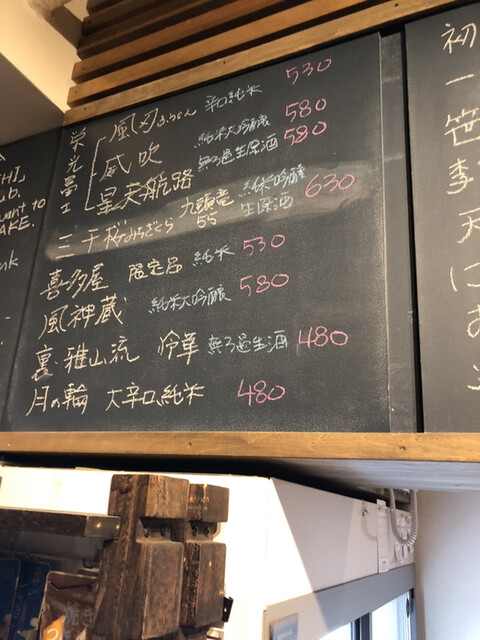 栄光富士
風刃ふうじん 辛口純米 530
威吹 純米大吟醸 580
星天航路 無ろ過生原酒 580
三千桜みちざくら 九頭竜55 純米吟醸生原酒 630
喜多屋 限定品 純米 530
風神蔵 純米大吟醸 580
裏・雅山流 怜華 無ろ過生酒 480
月の輪 大辛口純米 480
HI,
ub.
want to
AKE.
nk
初
一
笹
李
天
に
お
焼き